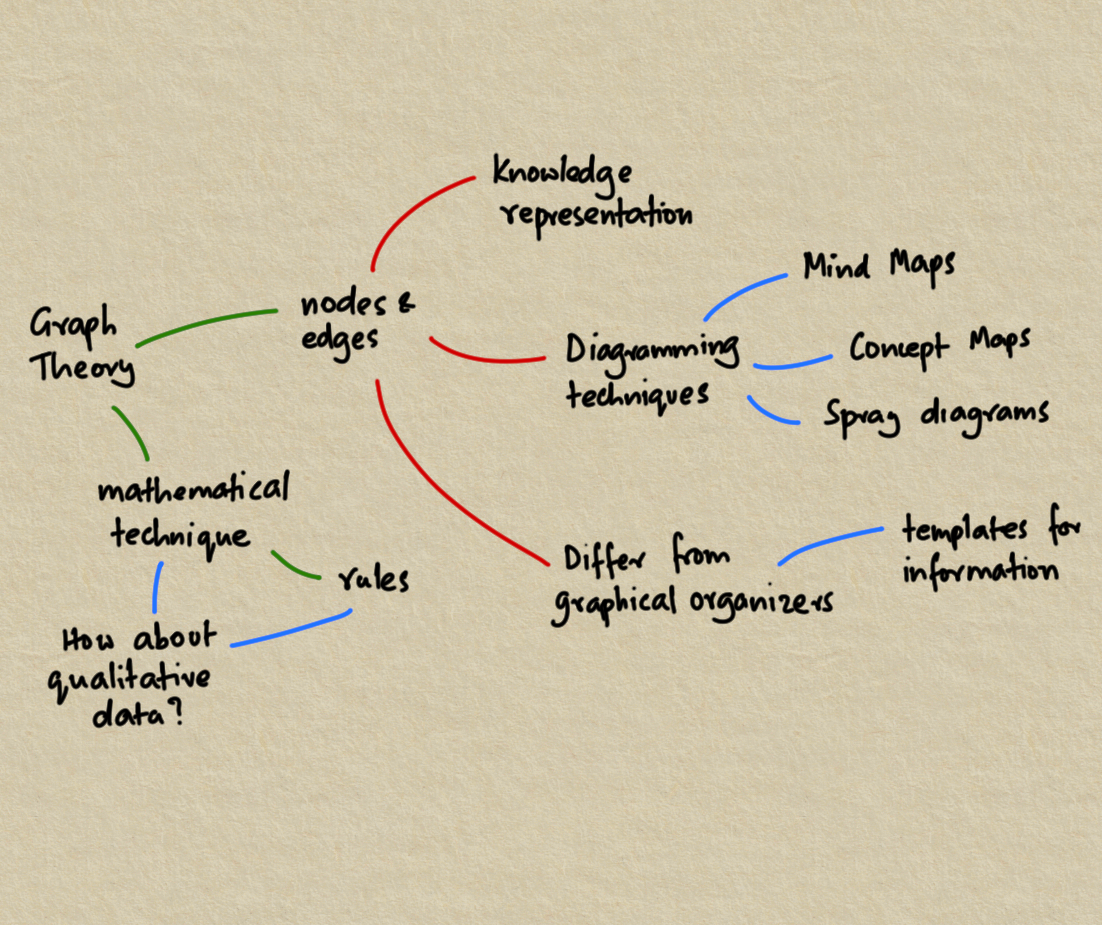 Knowledge
representation
Mind Maps
nodes &
edges
Graph
Theory
Diagramming
techniques
Concept Maps
Spray diagrams
mathematical
technique
rules
Differ from
graphical organizers
templates for
information
How about
qualitative
data?